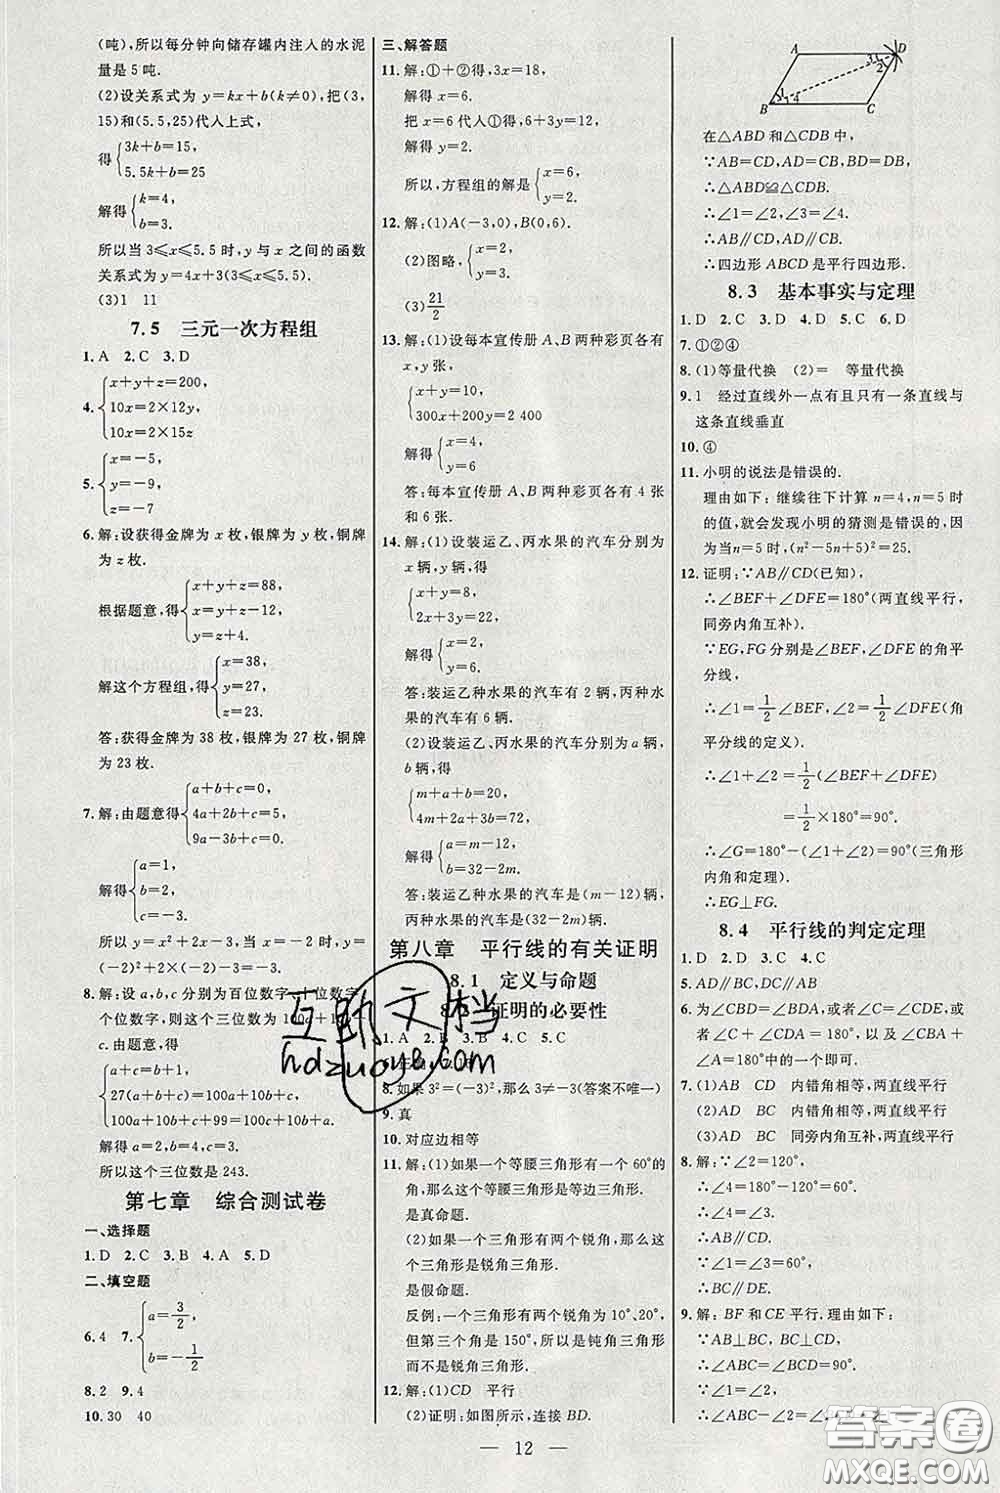 (吨),所以每分钟向储存罐内注入的水泥
量是5吨.
(2)设关系式为y=kx+b(k≠0),把(3,
15)和(5.5,25)代入上式,
得{3k+b=15,
5.5k+b=25
解得{k=4,
b=3.
所以当3≤x≤5.5时,y与x之间的函数
关系式为y=4x+3(3≤x≤5.5).
(3)1 11
7.5 三元一次方程组
1.A 2.C 3.D
4.{x+y+z=200,
10x=2×12y,
10x=2×15z
5.{x=-5,
y=-9,
z=-7
6.解:设获得金牌为x枚,银牌为y枚,铜牌
为z枚.
根据题意,得{x+y+z=88,
x=y+z-12,
y=z+4.
解这个方程组,得{x=38,
y=27,
z=23.
答:获得金牌为38枚,银牌为27枚,铜牌
为23枚.
7.解:由题意得{a+b+c=0,
4a+2b+c=5,
9a-3b+c=0.
解得{a=1,
b=2,
c=-3.
所以y=x²+2x-3,当x=-2时,y=
(-2)²+2×(-2)-3=-3.
8.解:设a,b,c分别为百位数字、十位数字、
个位数字,则这个三位数为100a+10b+
c.由题意,得
{a+c=b+1,
27(a+b+c)=100a+10b+c,
100a+10b+c+99=100c+10b+a.
解得a=2,b=4,c=3.
所以这个三位数是243.
第七章 综合测试卷
一、选择题
1.D 2.C 3.B 4.A 5.D
二、填空题
6.4 7.{a=3/2,
b=-1/2
8.2 9.4
10.30 40
三、解答题
11.解:①+②得,3x=18,
解得x=6.
把x=6代入①得,6+3y=12,
解得y=2.
所以,方程组的解是{x=6,
y=2.
12.解:(1)A(-3,0),B(0,6).
(2)图略,{x=2,
y=10.
(3)21/2
13.解:(1)设每本宣传册A、B两种彩页各有
x,y张,
{x+y=10,
300x+200y=2 400
解得{x=4,
y=6.
答:每本宣传册A、B两种彩页各有4张
和6张.
14.解:(1)设装运乙、丙水果的汽车分别为
x辆,y辆,得
{x+y=8,
2x+3y=22.
解得{x=2,
y=6.
答:装运乙种水果的汽车有2辆,丙种水
果的汽车有6辆.
(2)设装运乙、丙水果的汽车分别为a辆,
b辆,得
{m+a+b=20,
4m+2a+3b=72.
解得{a=m-12,
b=32-2m.
答:装运乙种水果的汽车是(m-12)辆,
丙种水果的汽车是(32-2m)辆.
第八章 平行线的有关证明
8.1 定义与命题
8.2 证明的必要性
1.A 2.B 3.B 4.C 5.C
8.如果3²=(-3)²,那么3≠-3(答案不唯一)
9.真
10.对应边相等
11.解:(1)如果一个等腰三角形有一个60°
的角,那么这个三角形是等边三角形.
是真命题.
(2)如果一个三角形有两个锐角,那么这
个三角形是锐角三角形.
是假命题.
反例:一个三角形有两个锐角为10°、20°,
但第三个角是150°,所以是钝角三角形
而不是锐角三角形.
12.解:(1)CD 平行
(2)证明:如图所示,连接BD.
A D B C 1 2 3 4
在△ABD和△CDB中,
∵AB=CD,AD=BC,BD=DB,
∴△ABD≌△CDB.
∴∠1=∠2,∠3=∠4.
∴AB∥CD,AD∥BC.
∴四边形ABCD是平行四边形.
8.3 基本事实与定理
1.D 2.C 3.D 4.D 5.C 6.D
7.①②④
8.(1)等量代换 (2)= 等量代换
9.1 经过直线外一点有且只有一条直线与
这条直线垂直
10.④
11.小明的说法是错误的.
理由如下:继续往下计算n=4,n=5时
的值,就会发现小明的猜测是错误的,因
为当n=5时,(n²-5n+5)²=25.
12.证明:∵AB∥CD(已知),
∴∠BEF+∠DFE=180°(两直线平行,
同旁内角互补).
∵EG,FG分别是∠BEF,∠DFE的角平
分线.
∴∠1=1/2∠BEF,∠2=1/2∠DFE(角
平分线的定义).
∴∠1+∠2=1/2(∠BEF+∠DFE)
=1/2×180°=90°.
∴∠G=180°-(∠1+∠2)=90°(三角形
内角和定理).
∴EG⊥FG.
8.4 平行线的判定定理
1.D 2.D 3.C 4.C
5.AD∥BC
6.为∠CBA+∠BAD=180°、∠BAD+
∠C+∠CDA=180°,以及∠CBA+
∠A=180°中的一个即可.
7.(1)AB CD 内错角相等,两直线平行
(2)AD BC 内错角相等,两直线平行
(3)AD BC 同旁内角互补,两直线平行
8.解:∵∠2=120°,
∴∠4=180°-120°=60°.
∵∠3=60°,
∴∠4=∠3.
∴AB∥CD.
∵∠1=∠2=60°,
∴∠1=∠3.
∴BC∥DE.
9.解:BF和CE平行.理由如下:
∵AB⊥BC,BC⊥CD,
∴∠ABC=∠BCD=90°.
∵∠1=∠2,
∴∠ABC-∠1=∠BCD-∠2.
— 12 —
互助文档
hdzuoye.com
答案圈
MXQE.COM